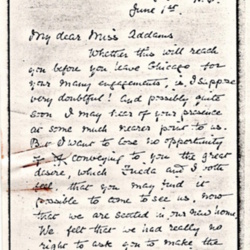 June 1st.
My dear Miss Addams
Whether this will reach
you before you leave Chicago for
your many engagements, is, I suppose
very doubtful! And possibly quite
soon I may hear of your presence
at some much nearer point to us.
But I want to lose no opportunity
of conveying to you the great
desire, which Frieda and I both
feel that you may find it
possible to come to see us, now
that we are settled in our new home.
We felt that we had really no
right to ask you to make the